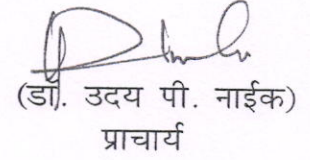 (डॉ. उदय पी. नाईक)
प्राचार्य